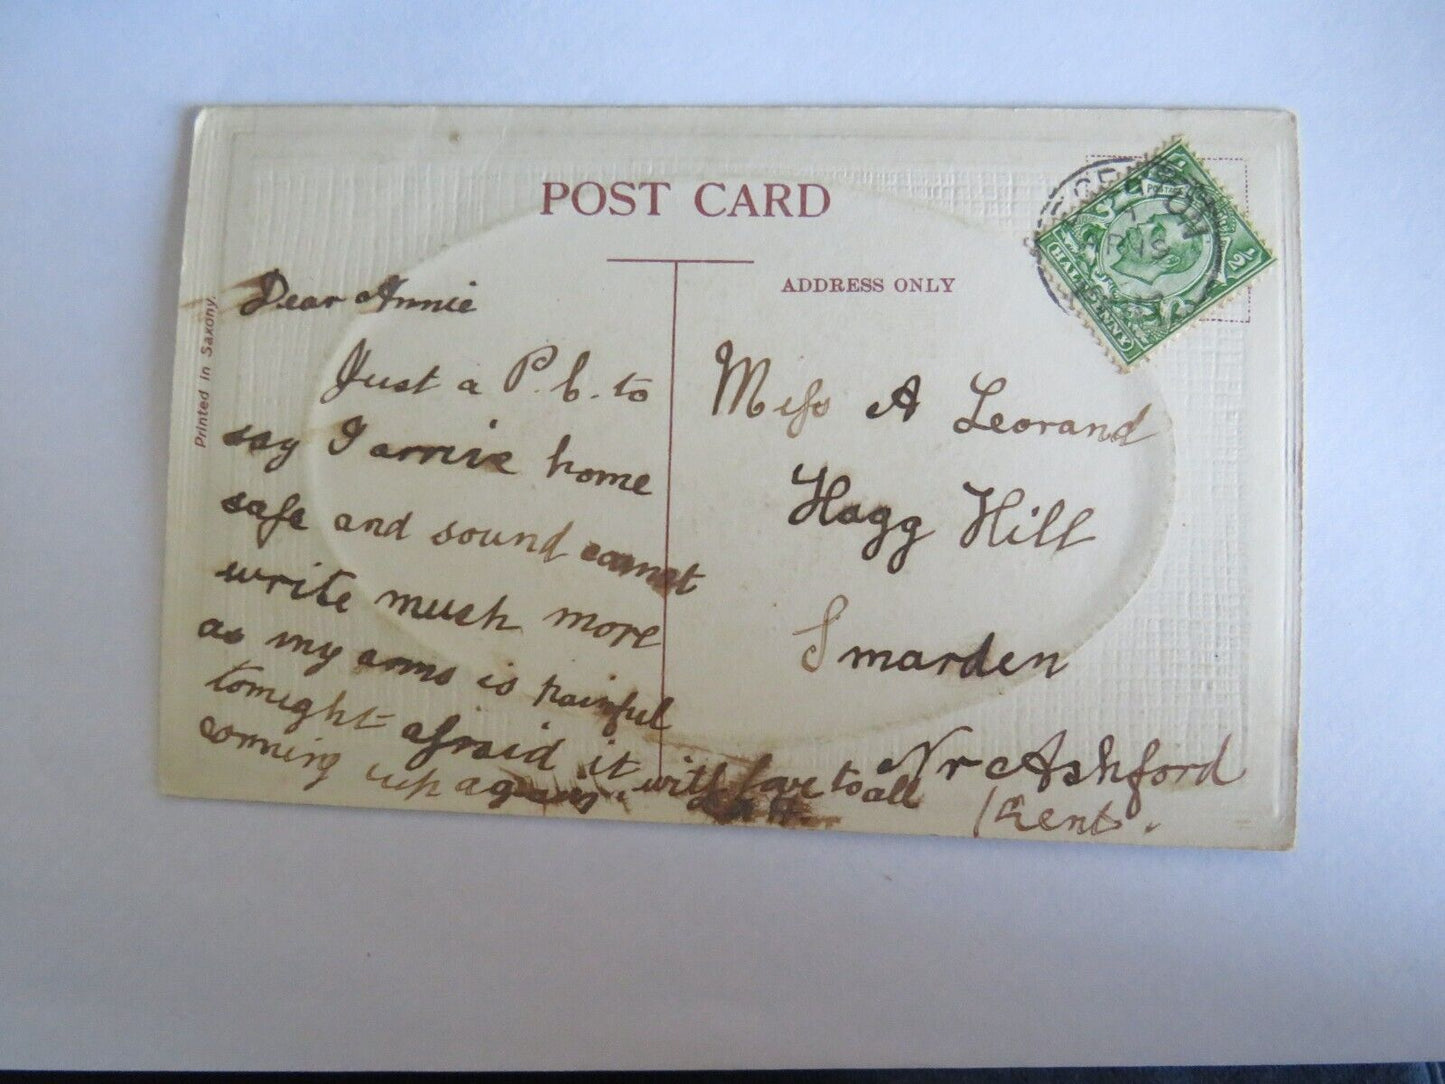 POST CARD
ADDRESS ONLY
Printed in Saxony.
Dear Annie
Just a P.C. to
say I arrive home
safe and sound cannot
write mush more
as my arms is painful
tonight afraid it
comning up again. with love to all
Miss A Leorand
Hagg Hill
Smarden
Nr Ashford
Kent.
HALFPENNY
1/2